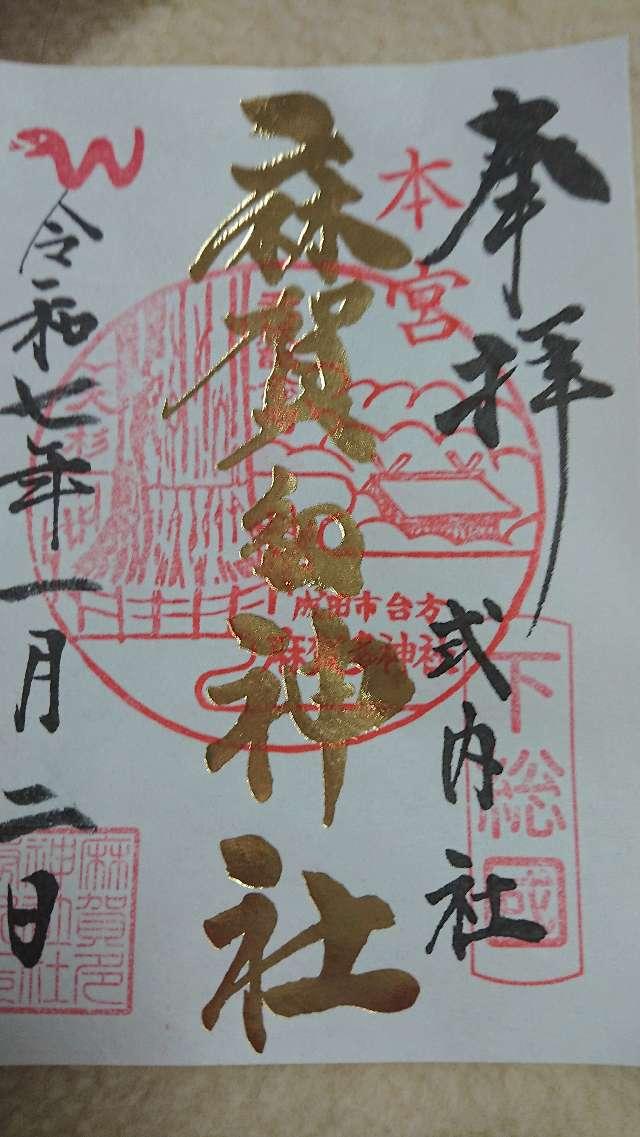 奉拝
本宮
式内社
下総國
麻賀多神社
大杉
成田市台方
麻賀多神社
令和七年一月二日
麻賀多
神社